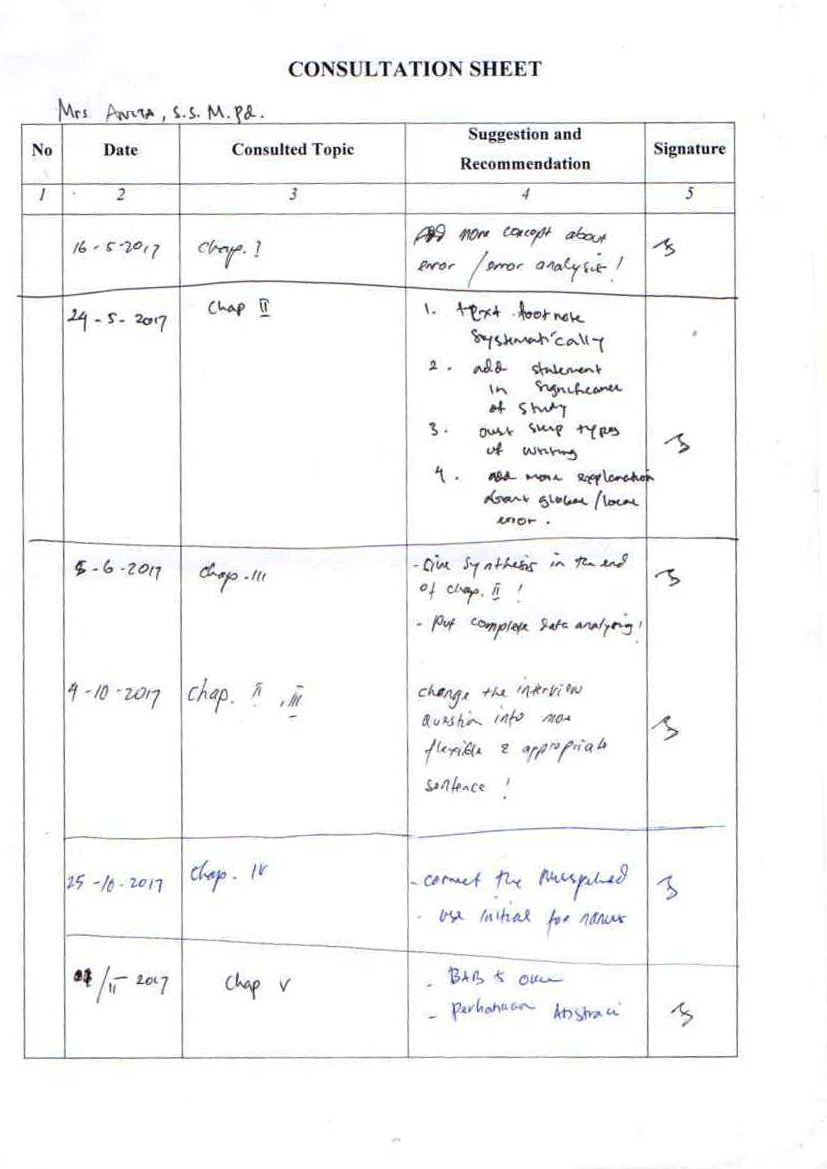 CONSULTATION SHEET
Mrs. Anita, S.S. M.Pd.
No Date Consulted Topic Suggestion and Recommendation Signature
1 2 3 4 5
16-5-2017 Chap. I Add more concept about
error / error analysis!
24-5-2017 Chap II 1. text footnote
systematically
2. add statement
in significance
of study
3. types
of writing
4. add more explanation
about global/local
error.
5-6-2017 Chap. III - Give synthesis in the end
of chap. II !
- put complete data analyzing!
4-10-2017 Chap. II, III change the interview
question into more
flexible & appropriate
sentence !
25-10-2017 Chap. IV - correct the
- use initial for names
/11- 2017 Chap V - BAB 5
-